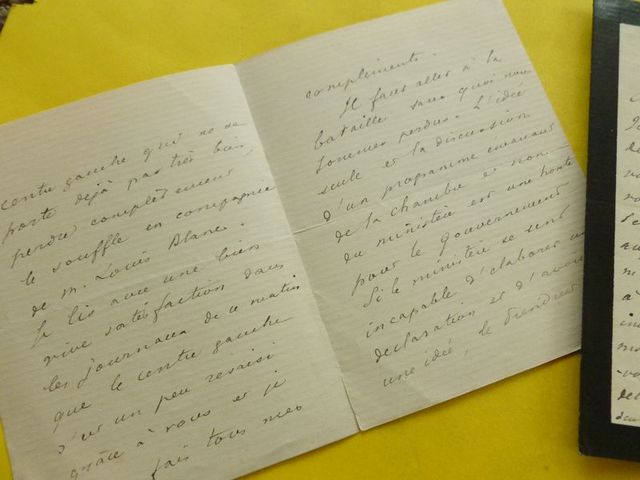 centre gauche qui ne se
porte déjà pas très bien,
perdre complètement
le souffle en compagnie
de M. Louis Blanc.
Je lis avec une bien
vive satisfaction dans
les journaux de ce matin
que le centre gauche
s'est un peu ressaisi
grâce à vous et je
fais tous mes
compliments.
Il faut aller à la
bataille sans quoi nous
sommes perdus. L'idée
seule et la discussion
d'un programme émanant
de la chambre et non
du ministère est une honte
pour le gouvernement
Si le ministère se sent
incapable d'élaborer une
déclaration et d'avoir
une idée, le